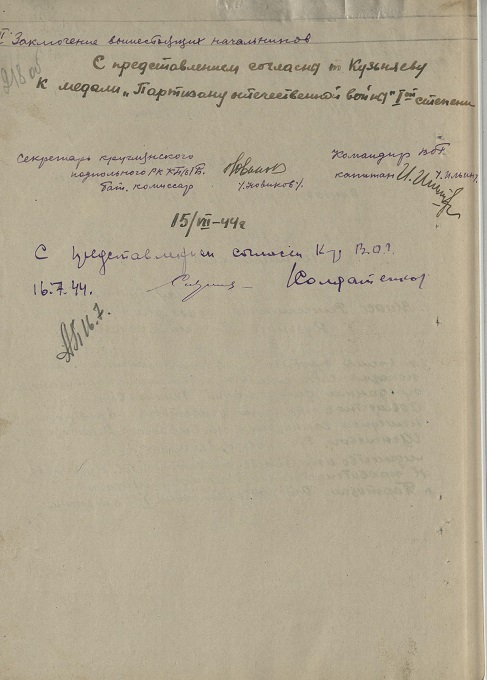 218 об
II Заключение вышестоящих начальников
С представлением согласны т. Кузьняеву
к медали „Партизану отечественной войны" I ой степени
Секретарь
подпольного РК КП/б/Б.
бат. комиссар
/Новиков/.
Командир
капитан
/Ильин/.
15/VII-44г
С представлением согласен
16.7.44. Солдатенко
16.7.